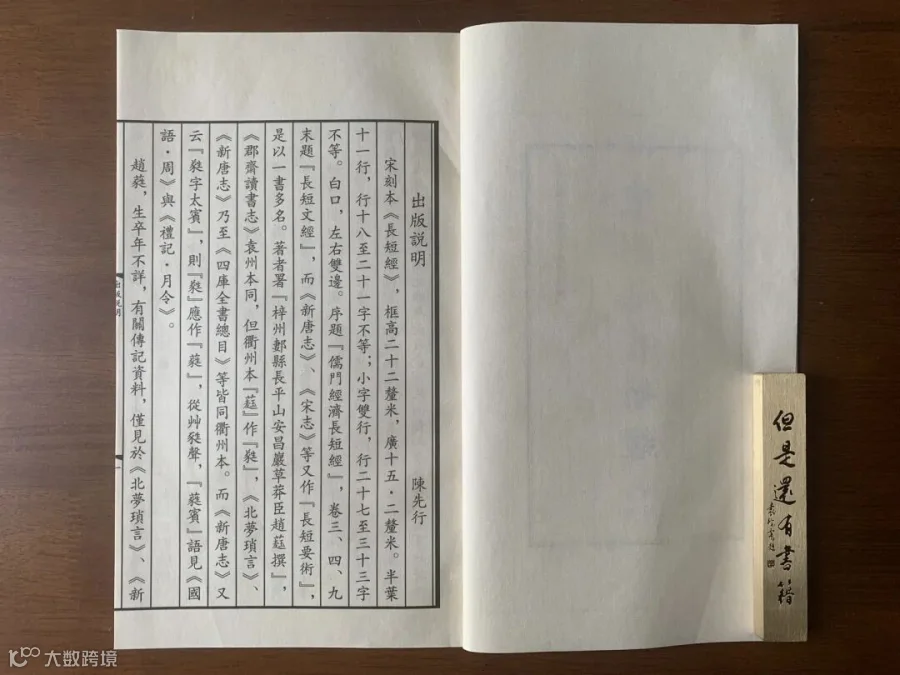 出版説明
陳先行
宋刻本《長短經》，框高二十二釐米，廣十五·二釐米。半葉
十一行，行十八至二十一字不等；小字雙行，行二十七至三十三字
不等。白口，左右雙邊。序題『儒門經濟長短經』，卷三、四、九
末題『長短文經』，而《新唐志》、《宋志》等又作『長短要術』，
是以一書多名。著者署『梓州郪縣長平山安昌巖草莽臣趙蕤撰』，
《郡齋讀書志》袁州本同，但衢州本『蕤』作『㽔』，《北夢瑣言》、
《新唐志》乃至《四庫全書總目》等皆同衢州本。而《新唐志》又
云『㽔字太賓』，則『㽔』應作『蕤』，從艸㽔聲，『蕤賓』語見《國
語·周》與《禮記·月令》。
趙蕤，生卒年不詳，有關傳記資料，僅見於《北夢瑣言》、《新
出版説明
一
但是還有書籍
大数跨境